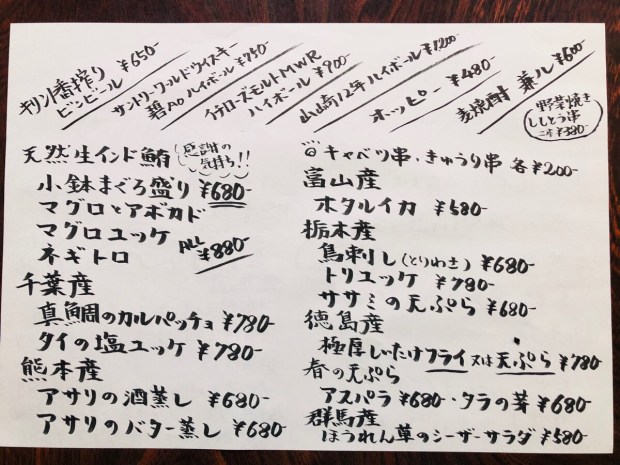 キリン一番搾り
ビンビール ¥650-
サントリーワールドウイスキー
碧Ao ハイボール ¥750
イチローズモルトMWR
ハイボール ¥900-
山崎12年 ハイボール ¥1200-
ホッピー ¥480-
麦焼酎 兼八 ¥600-
野菜焼き
ししとう串
二本 ¥380-
天然生インド鮪
感謝の
気持ち!!
小鉢まぐろ盛り ¥680-
マグロとアボカド
マグロユッケ
ネギトロ
ALL
¥880-
千葉産
真鯛のカルパッチョ ¥780-
タイの塩ユッケ ¥780-
熊本産
アサリの酒蒸し ¥680-
アサリのバター蒸し ¥680-
◎キャベツ串・きゅうり串 各¥200-
富山産
ホタルイカ ¥580-
栃木産
鳥刺し(とりわさ) ¥680-
トリユッケ ¥780-
ササミの天ぷら ¥680-
徳島産
極厚しいたけフライ又は天ぷら ¥780
春の天ぷら
アスパラ ¥680-・タラの芽 ¥680-
群馬産
ほうれん草のシーザーサラダ ¥580-